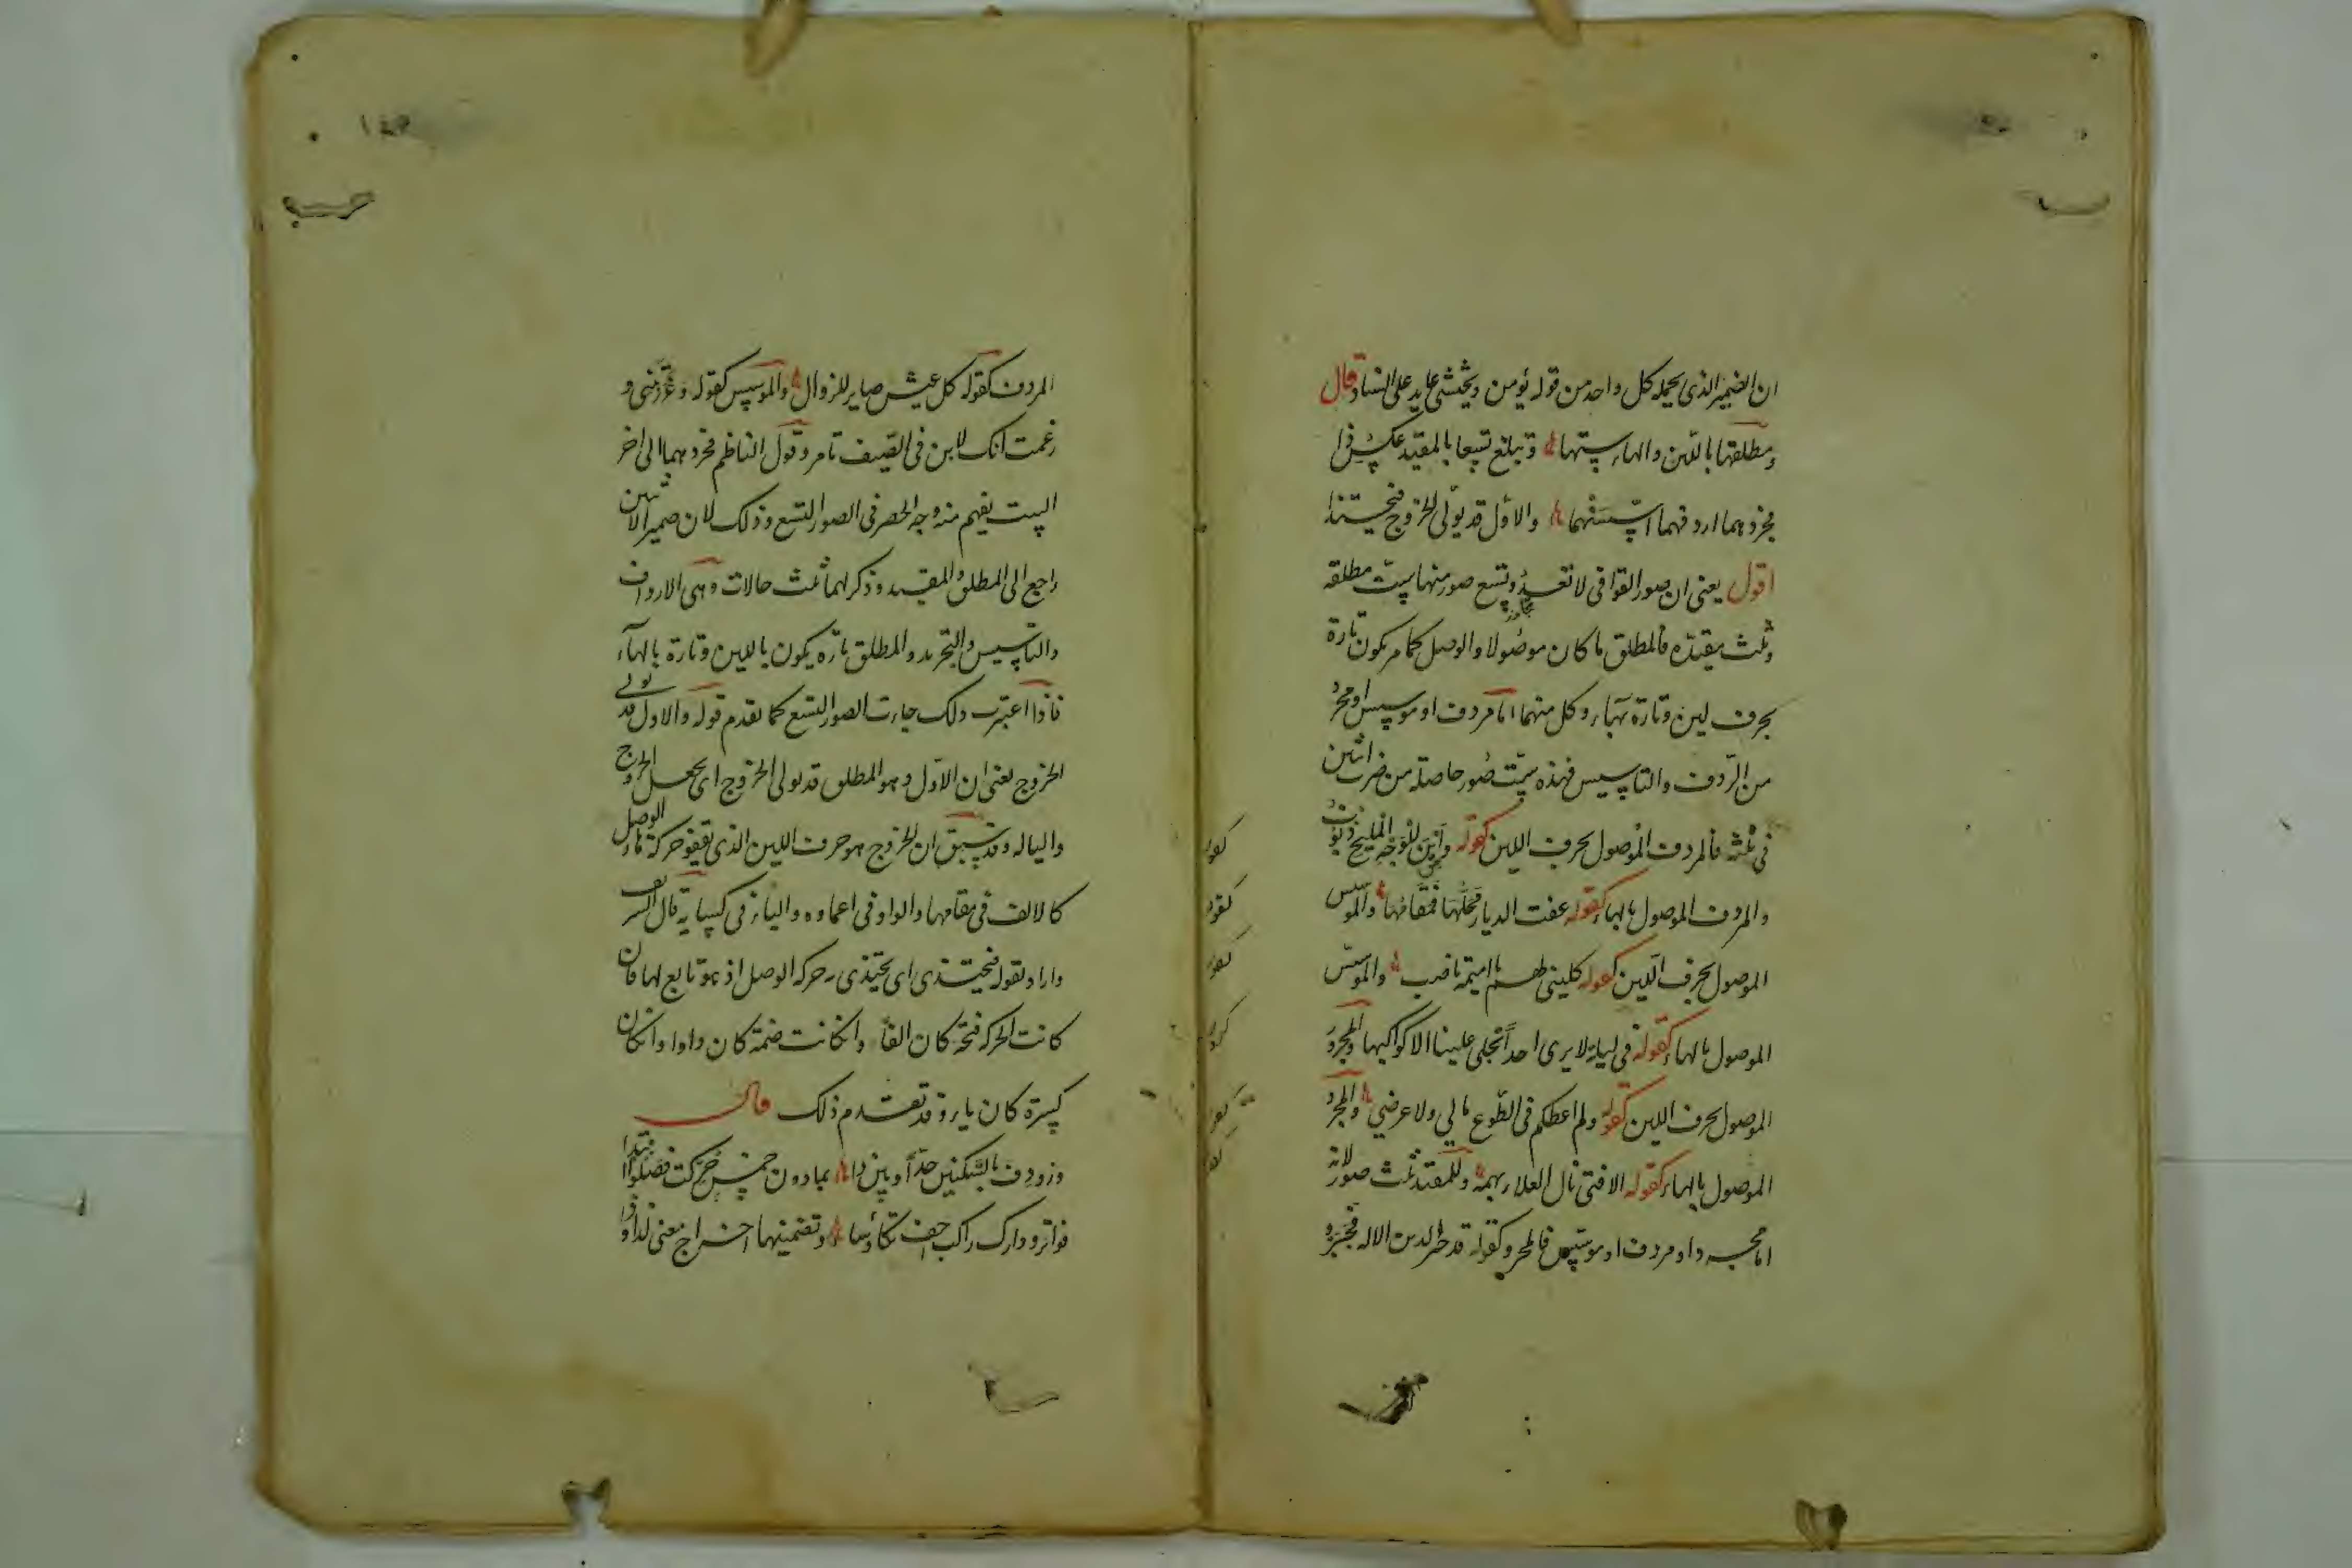 ان الضمير الذى يحمله كل واحد من قوله يؤمن ويخشى عايد على السناد قال
ومطلقها باللين والهاء ستها وتبلغ تسعا بالمقيد عكس ذا
فجردهما اردفهما اسسنهما والاول قد يولى الخروج فيحتذا
اقول يعنى ان صور القوافى لا تعدو تسع صور منها ست مطلقه
وثلث مقيده فالمطلق ما كان موصولا والوصل كما مر يكون تارة
بحرف لين وتارة بهاء وكل منهما اما مردف او موسس او مجرد
من الردف والتاسيس فهذه ست صور حاصلة من ضرب اثنين
فى ثلثه فالمردف الموصول بحرف اللين كقوله
والمردف الموصول بالهاء كقوله عفت الديار محلها فمقامها والموسس
الموصول بحرف اللين كقوله كلينى لهم يا اميمة ناصب والموسس
الموصول بالهاء كقوله فى ليلة لا يرى احدا تجلى علينا الا كواكبها والمجرد
الموصول بحرف اللين كقوله ولم اعطكم فى الطوع مالي ولا عرضي والمجرد
الموصول بالهاء كقوله الا فتى نال العلاء بهمه وللمقيد ثلث صور لانه
اما مجرد او مردف او موسس فالمجرد كقوله قد جبر الدين الاله فجبر و
المردف كقوله كل عيش صاير للزوال والموسس كقوله وغررتنى و
زعمت انك لابن فى الصيف تامر وقول الناظم فجردهما الى اخر
البيت يفهم منه وجه الحصر فى الصور التسع وذلك لان ضمير الاثنين
راجع الى المطلق والمقيد وذكر لهما ثلث حالات وهى الارداف
والتاسيس والتجريد والمطلق تارة يكون باللين وتارة بالهاء
فاذا اعتبرت ذلك جاءت الصور التسع كما تقدم قوله والاول قد يولى
الخروج يعنى ان الاول وهو المطلق قد يولى الخروج اى يجعل الخروج
واليا له وقد سبق ان الخروج هو حرف اللين الذى يقفو حركة هاء الوصل
كالالف فى مقامها والواو فى اعماوه والياء فى كسايه قال الشريف
واراد بقوله فيحتذى اى يحتذى حركه الوصل اذ هو تابع لها فان
كانت الحركه فتحة كان الفا وان كانت ضمة كان واوا وان كان
كسرة كان ياء وقد تقدم ذلك قال
وزودف بالسكنين حدا وبين ذا بما دون خمس حركت فصلوا ابتدا
فواتر ودارك راكب اجف تكاوسا وتضمينها احراج معنى لذا وذا